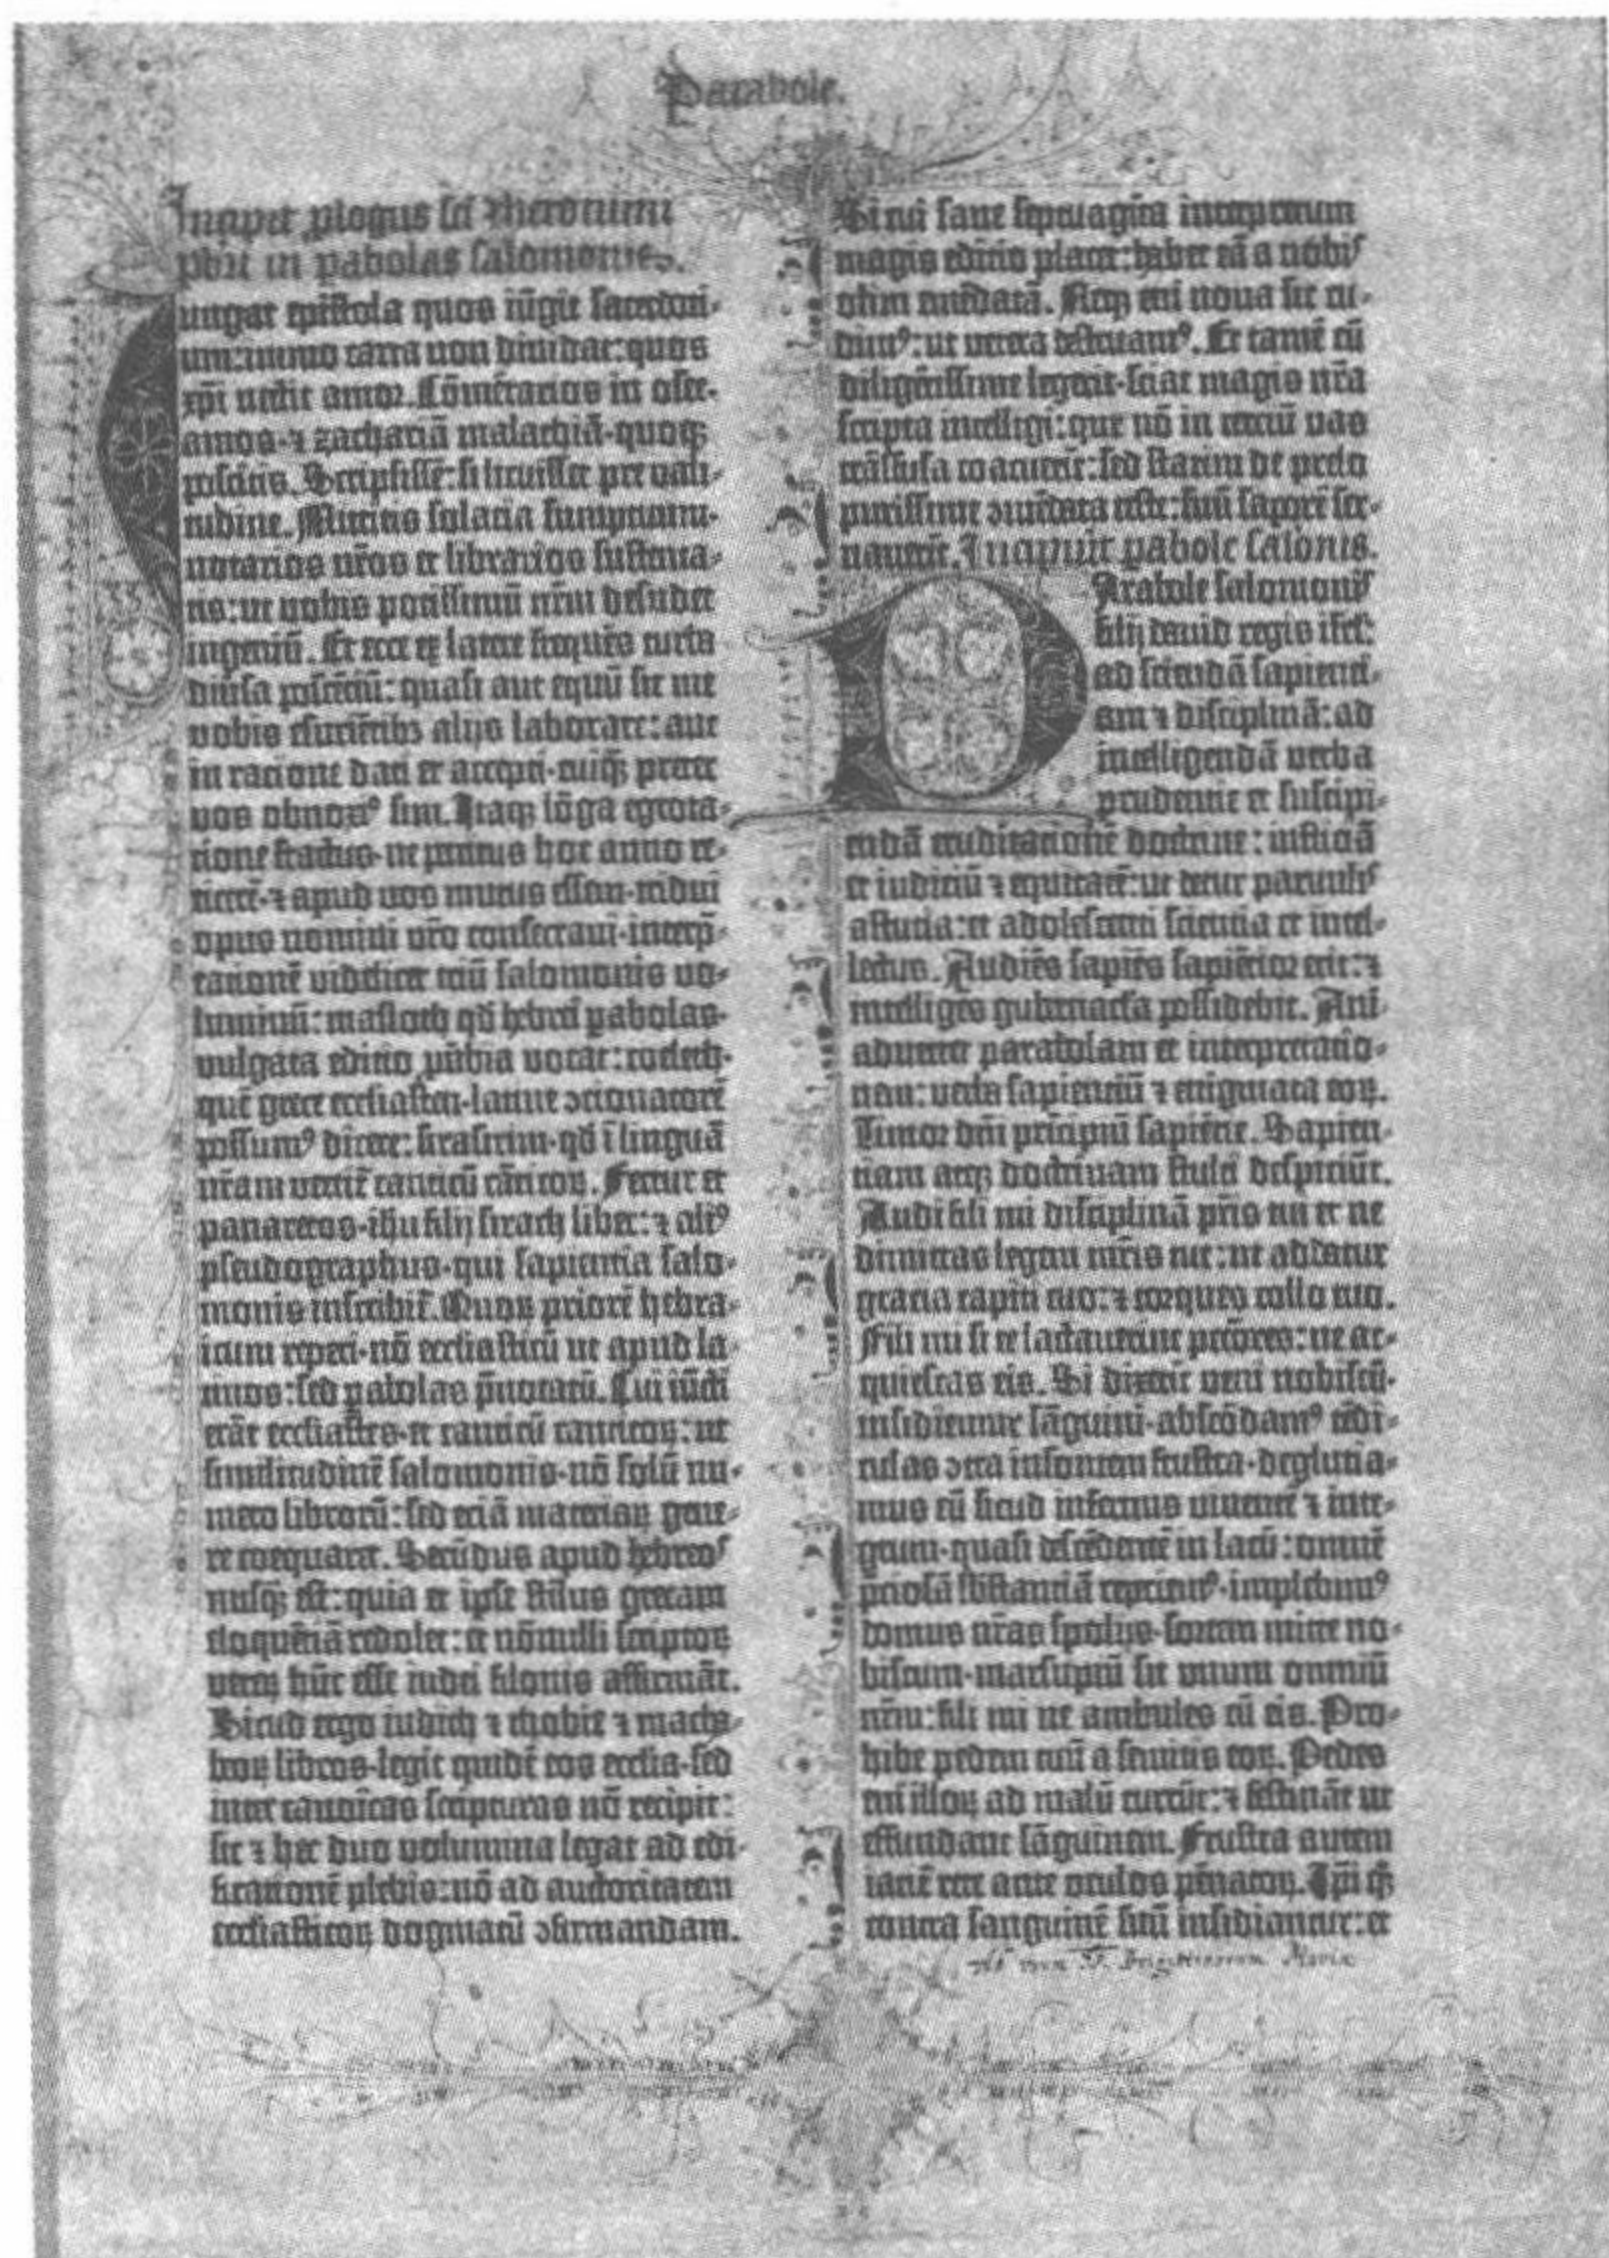 Parabole.
Incipit ꝓlogus sci iheronimi
pbri in pabolas salomonis.
ungat epistola quos iūgit sacerdoti-
um: immo carta non diuidat: quos
xp̄i nectit amor. Cōmētarios in osee-
amos ⁊ zachariā malachiā quoqꝫ
poscitis. Scripsissē: si licuisset pre vali-
tudine. Mittitis solacia sumptuum-
notarios nr̄os et librarios sustenta-
tis: ut vobis potissimū nr̄m desudet
ingeniū. Et ecce ex latere frequēs turba
diūsa poscētiū: quasi aut equū sit me
vobis esuriētibꝫ alijs laborare: aut
in racione dati et accepti cuiqꝫ preter
vos obnoxiꝰ sim. Itaqꝫ lōga egrota-
tione fractus ne penitus hoc anno re-
ticerē ⁊ apud vos mutus essem tridui
opus nomini vr̄o consecraui interp̄-
tationē videlicet triū salomonis vo-
luminū: masloth qd̄ hebrei pabolas
vulgata editio ꝓūbia vocat: coeleth
quē grece ecclesiasten latine ↄcionatorē
possumꝰ dicere: sirasirim qd̄ ī linguā
nr̄am vertit̄ canticū cāticoꝝ. Fertur et
panaretos ihu filij sirach liber: ⁊ aliꝰ
pseudographus qui sapientia salo-
monis inscribit̄. Quoꝝ priorē hebra-
icum reperi nō ecclesiasticū ut apud la-
tinos: sed pabolas p̄notatū. Cui iūcti
erāt ecclesiastes et canticū canticoꝝ: ut
similitudinē salomonis nō solū nu-
mero librorū: sed etiā materiaꝝ gene-
re coequaret. Secūdus apud hebreos
nusqꝫ est: quia et ipse stilus grecam
eloquētiā redolet: et nōnulli scriptoꝝ
veteꝝ hūc esse iudei filonis affirmāt.
Sicud ergo iudith ⁊ thobie ⁊ macha-
beoꝝ libros legit quidē eos ecclesia sed
inter canonicas scripturas nō recipit:
sic ⁊ hec duo volumina legat ad edi-
ficationē plebis: nō ad auctoritatem
ecclesiasticoꝝ dogmatū ↄfirmandam.
Si cui sane septuagīta interpretum
magis editio placet: habet eā a nobis
olim emēdatā. Neqꝫ eni noua sic cu-
dimꝰ: ut vetera destruamꝰ. Et tamē cū
diligētissime legerit sciat magis nr̄a
scripta intelligi: que nō in terciū vas
trāsfusa coacuerīt: sed statim de prelo
purissime ↄmēdata teste: suū saporē ser-
uauerīt. Incipiūt pabole salonis.
Arabole salomonis
filij dauid regis isrl:
ad sciendā sapienti-
am ⁊ disciplinā: ad
intelligendā verba
prudentie et suscipi-
endā eruditationē doctrine: iusticiā
et iudiciū ⁊ equitatē: ut detur paruulis
astucia: et adolescenti scientia et intel-
lectus. Audiēs sapiēs sapiētior erit: ⁊
intelligēs gubernacla possidebit. Ani-
aduertet parabolam et interpretatio-
nem: verba sapientiū ⁊ enigmata eoꝝ.
Timor dn̄i principiū sapiētie. Sapien-
tiam atqꝫ doctrinam stulti despiciūt.
Audi fili mi disciplinā pr̄is tui et ne
dimittas legem mr̄is tue: ut addatur
gracia capiti tuo: ⁊ torques collo tuo.
Fili mi si te lactauerint pctōres: ne ac-
quiescas eis. Si dixerīt veni nobiscū
insidiemur sāguini abscōdamꝰ tēdi-
culas ↄtra insontem frustra deglutia-
mus eū sicud infernus viuentē ⁊ inte-
grum quasi descēdentē in lacū: omnē
p̄ciosā substantiā reperiemꝰ implebimꝰ
domus nr̄as spolijs sortem mitte no-
biscum marsupiū sit vnum omniū
nr̄m: fili mi ne ambules cū eis. Pro-
hibe pedem tuū a semitis eoꝝ. Pedes
eni illoꝝ ad malū currūt: ⁊ festināt ut
effundant sāguinem. Frustra autem
iacit̄ rete ante oculos pēnatoꝝ. Ipī qꝫ
contra sanguinē suū insidiantur: et